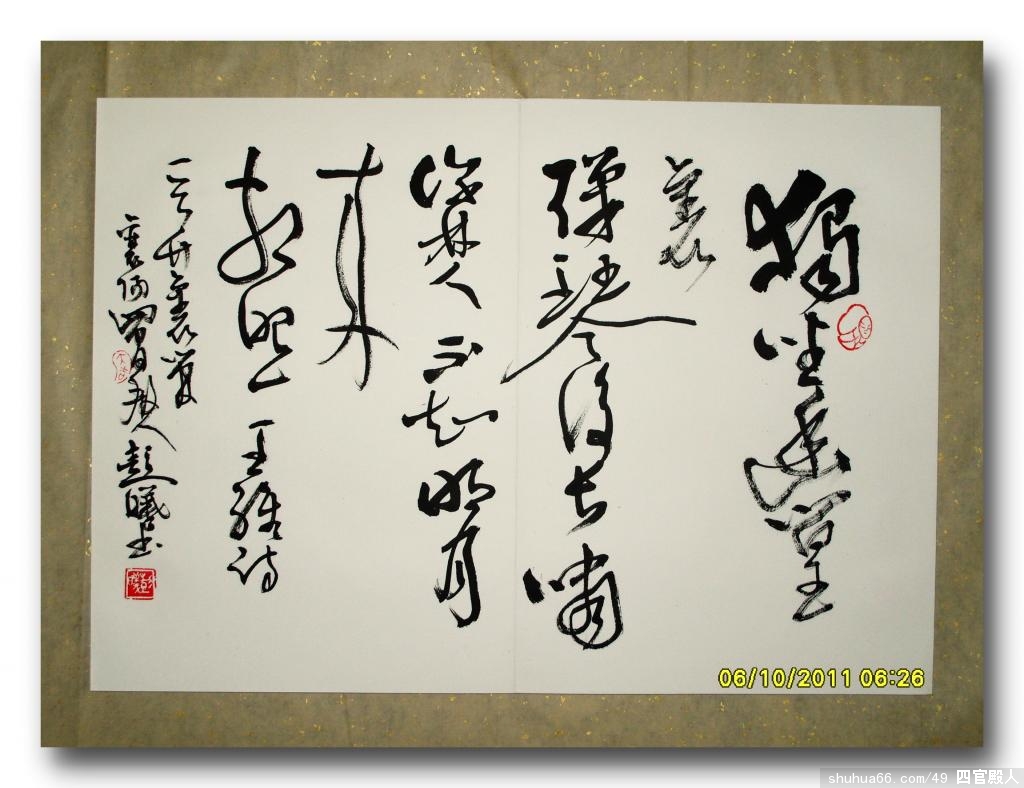 獨坐幽篁
裏
彈琴復長嘯
深林人不知明月
来
相照 王維詩
竹裏館
彭曦書
06/10/2011 06:26
shuhua66.com/49 四官殿人